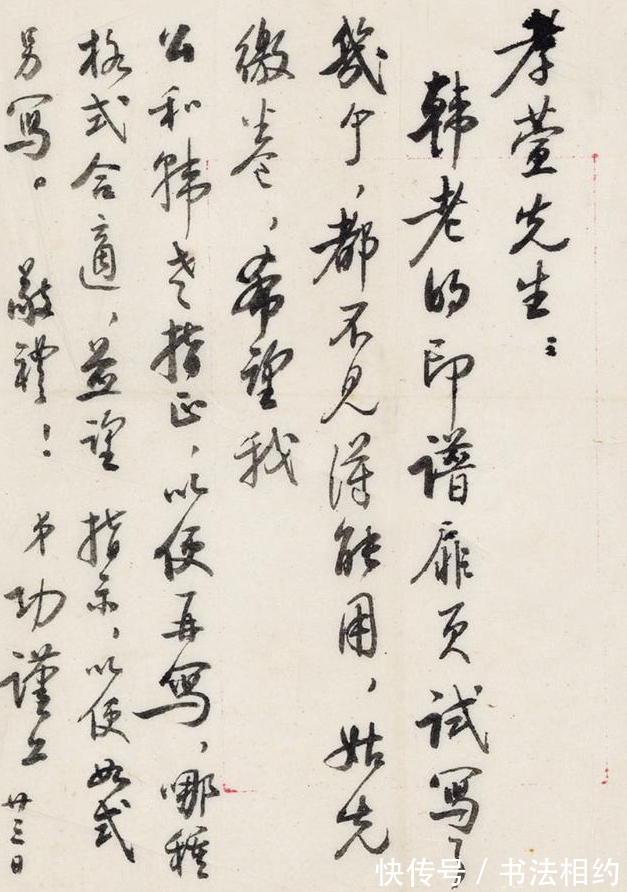 孝萱先生：
韩老的印譜扉页試寫了
幾個，都不見得能用，姑先
缴卷，希望我
公和韩老指正，以便再寫，哪種
格式合適，並望 指示，以便如式
另寫。 敬禮！ 弟功謹上 廿三日
快传号 / 书法相约